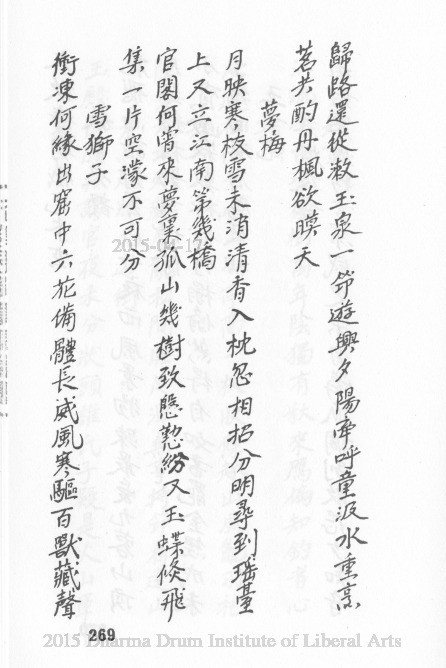 歸路還從漱玉泉一笻遊興夕陽牽呼童汲水重烹
茗共酌丹楓欲暝天
夢梅
月映寒枝雪未消清香入枕忽相招分明尋到瑤臺
上又立江南第幾橋
官閣何當來夢裏孤山幾樹致慇懃紛又玉蝶倏飛
集一片空濛不可分
雪獅子
衝凍何緣出窟中六花備體長威風寒驅百獸藏聲
2015-04-17
269
2015 Dharma Drum Institute of Liberal Arts